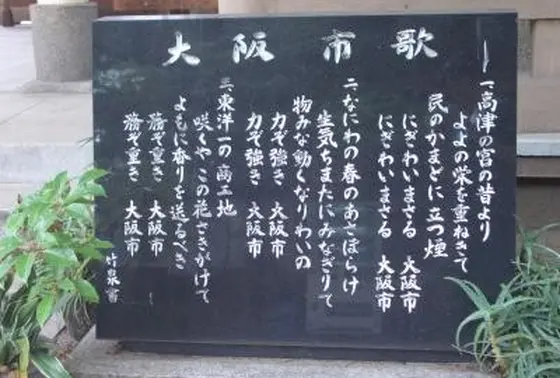 大阪市歌
一、高津の宮の昔より
よよの栄を重ねきて
民のかまどに立つ煙
にぎわいまさる 大阪市
にぎわいまさる 大阪市
二、なにわの春のあさぼらけ
生気ちまたにみなぎりて
物みな動くなりわいの
力ぞ強き 大阪市
力ぞ強き 大阪市
三、東洋一の商工地
咲くやこの花さきがけて
よもに香りを送るべき
務ぞ重き 大阪市
務ぞ重き 大阪市
竹泉書